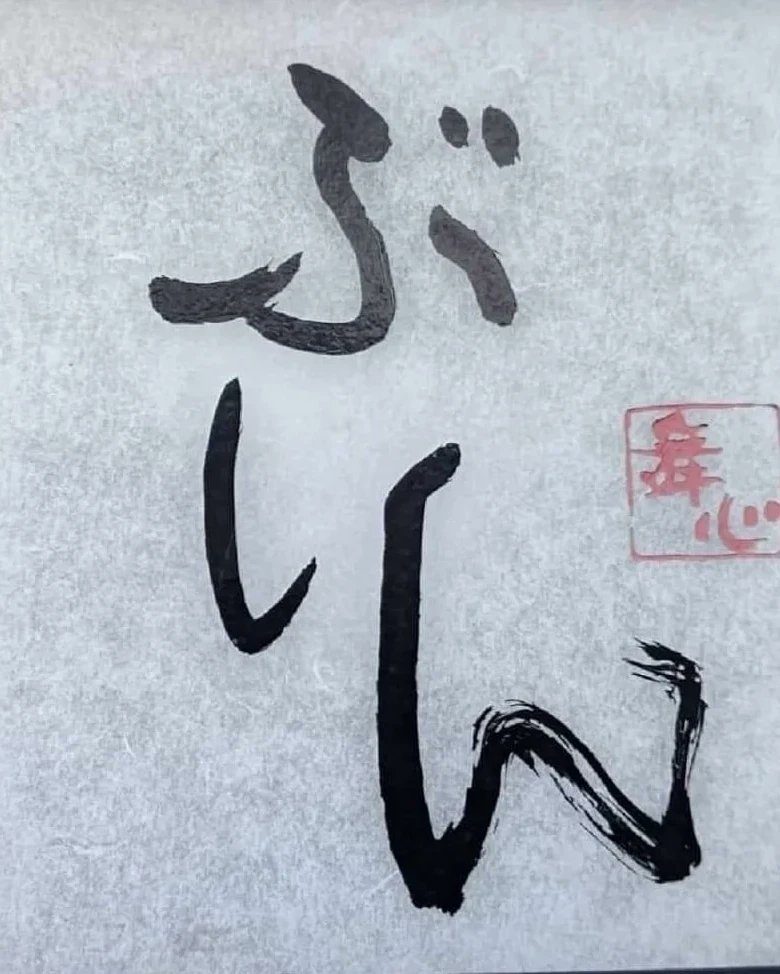 ぶしん
舞心